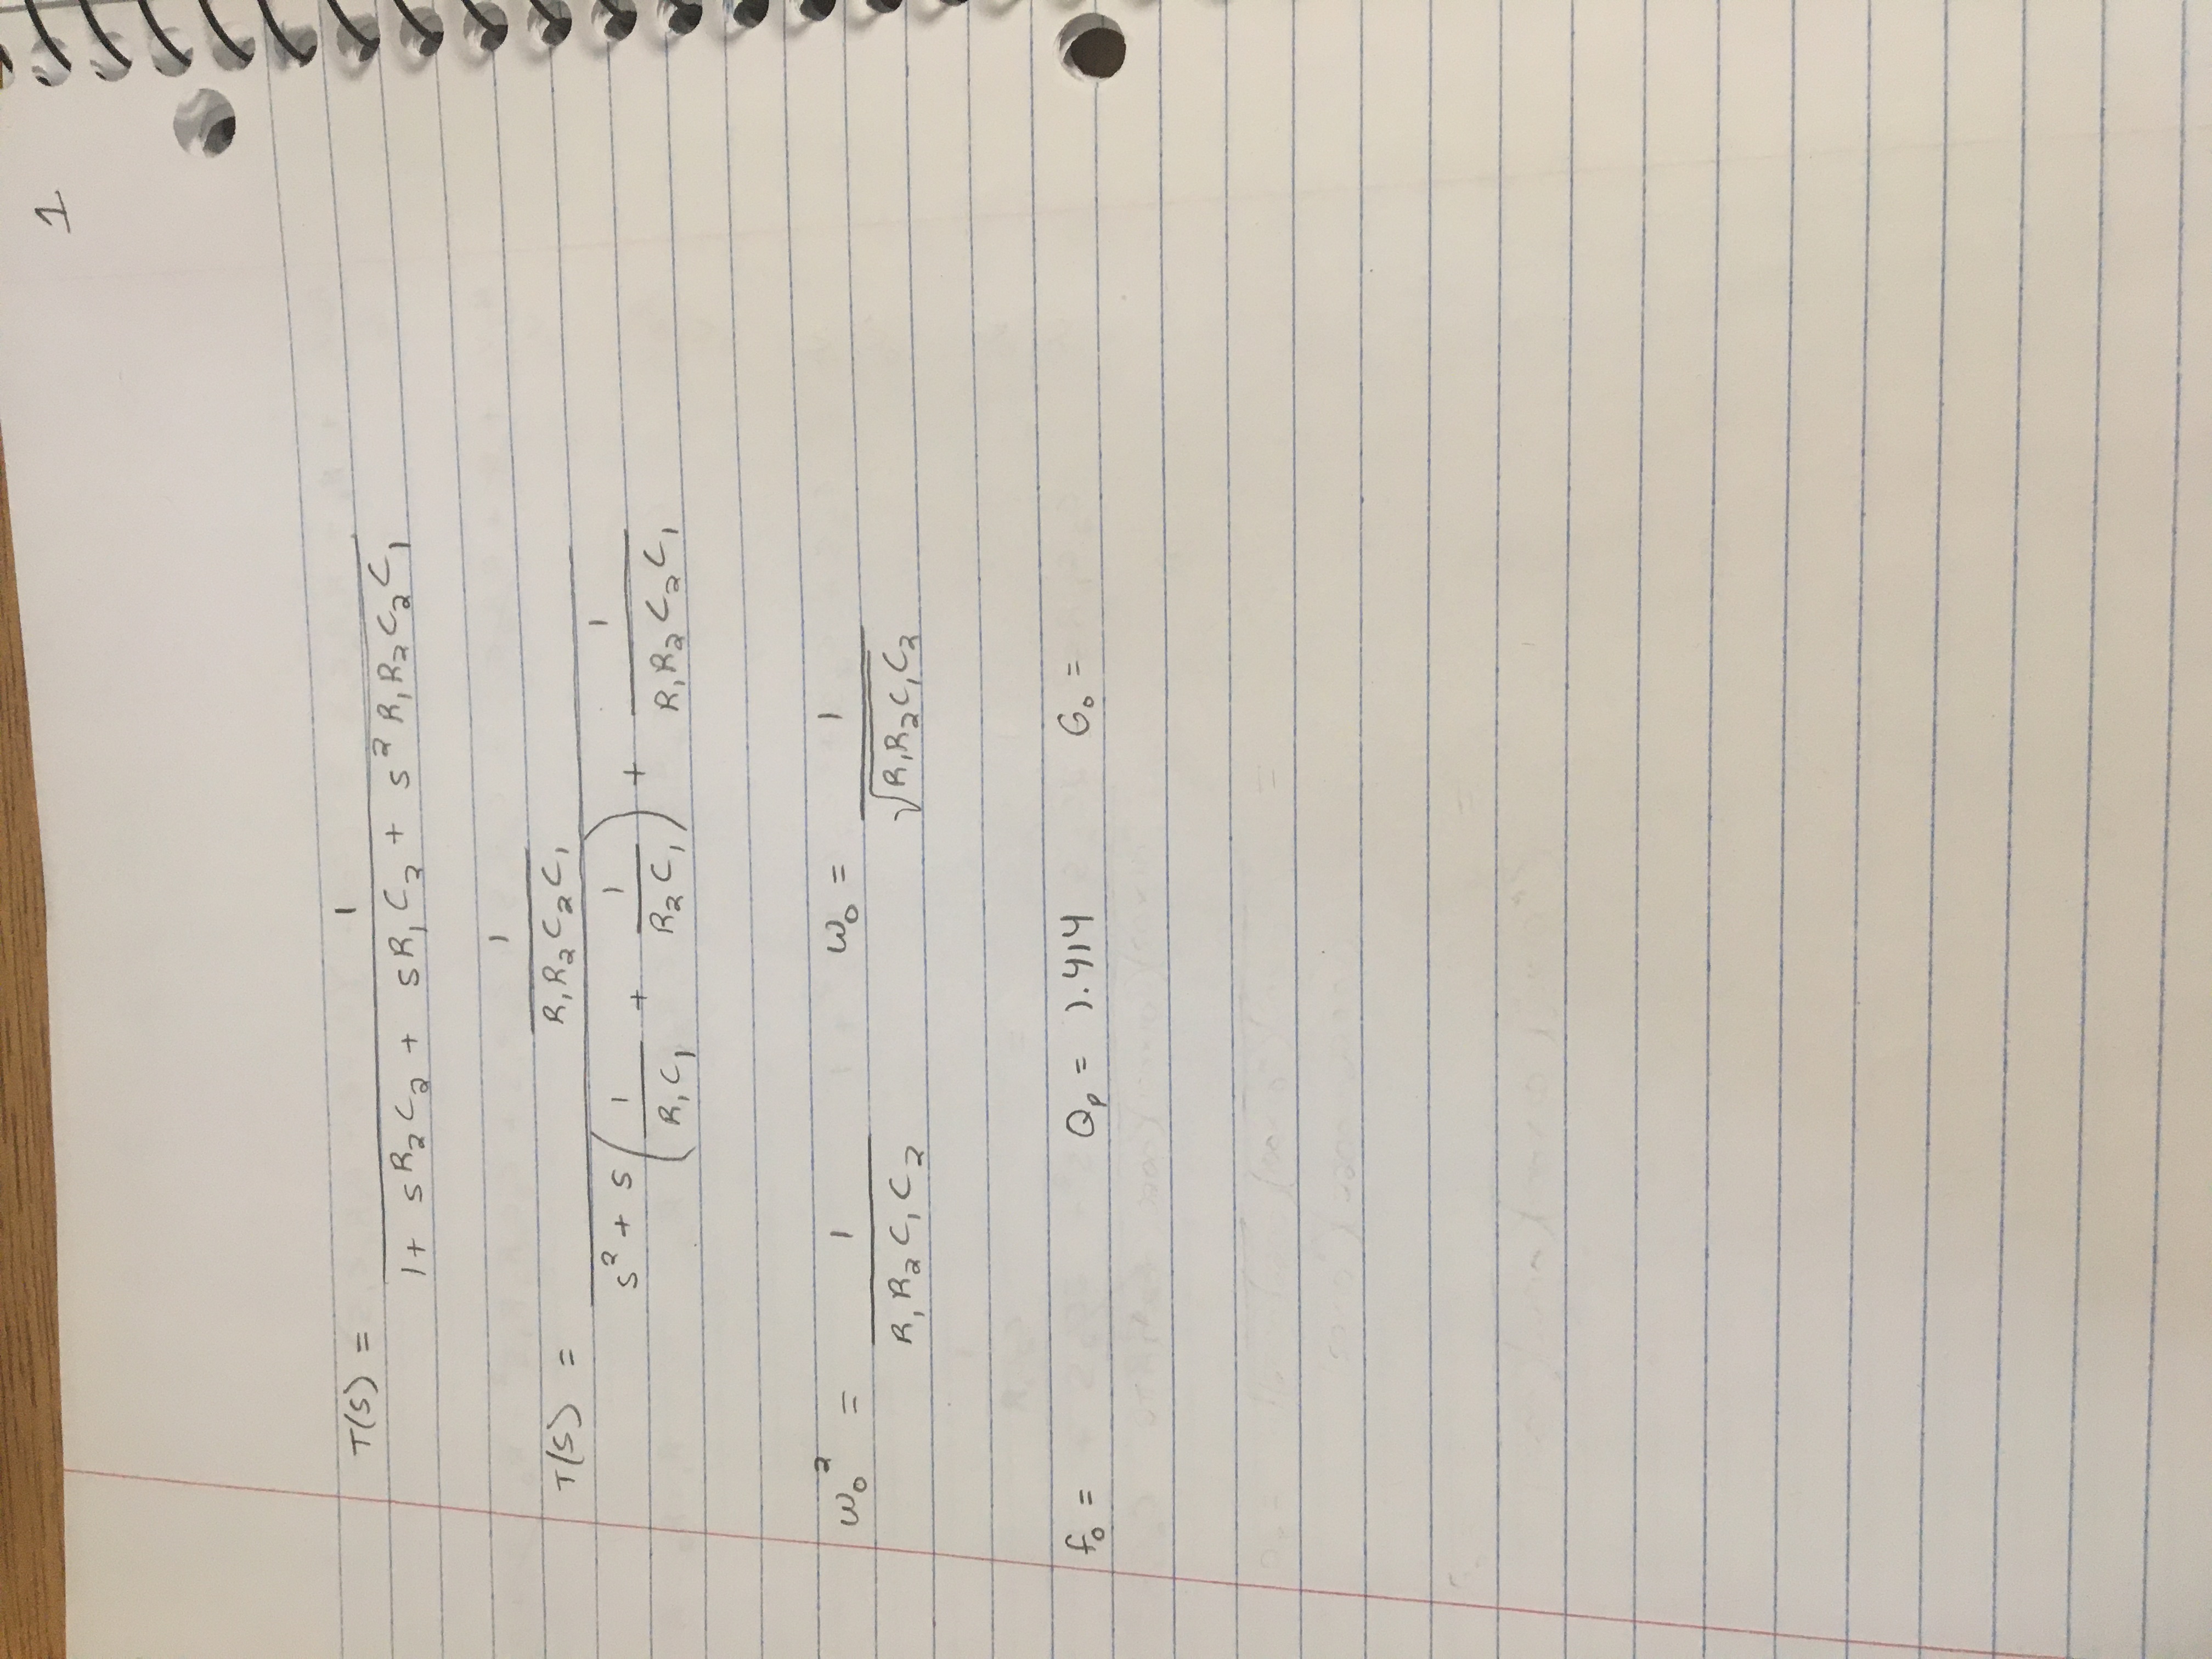 1
T(s) = 1 / (1 + sR₂C₂ + sR₁C₂ + s²R₁R₂C₂C₁)
T(s) = (1 / (R₁R₂C₂C₁)) / (s² + s(1/(R₁C₁) + 1/(R₂C₁)) + 1/(R₁R₂C₂C₁))
ω₀² = 1 / (R₁R₂C₁C₂) ω₀ = 1 / √(R₁R₂C₁C₂)
f₀ = Qₚ = 1.414 G₀ =